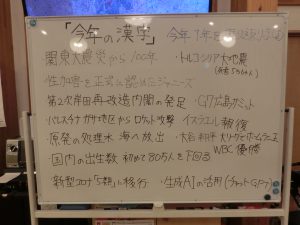 「今年の漢字」 今年1年を振り返り
関東大震災から100年 ・トルコシリア大地震
(死者5万6千人)
・性加害を正式に認めたジャニーズ
第2次岸田再改造内閣の発足 ・G7広島サミット
・パレスチナガザ地区からロケット攻撃 イスラエル報復
・原発の処理水 海へ放出 ・大谷翔平 大リーグでホームラン王
WBC優勝
・国内の出生数 初めて80万人を下回る
・新型コロナ「5類」に移行 ・生成AIの活用(チャットGPT)